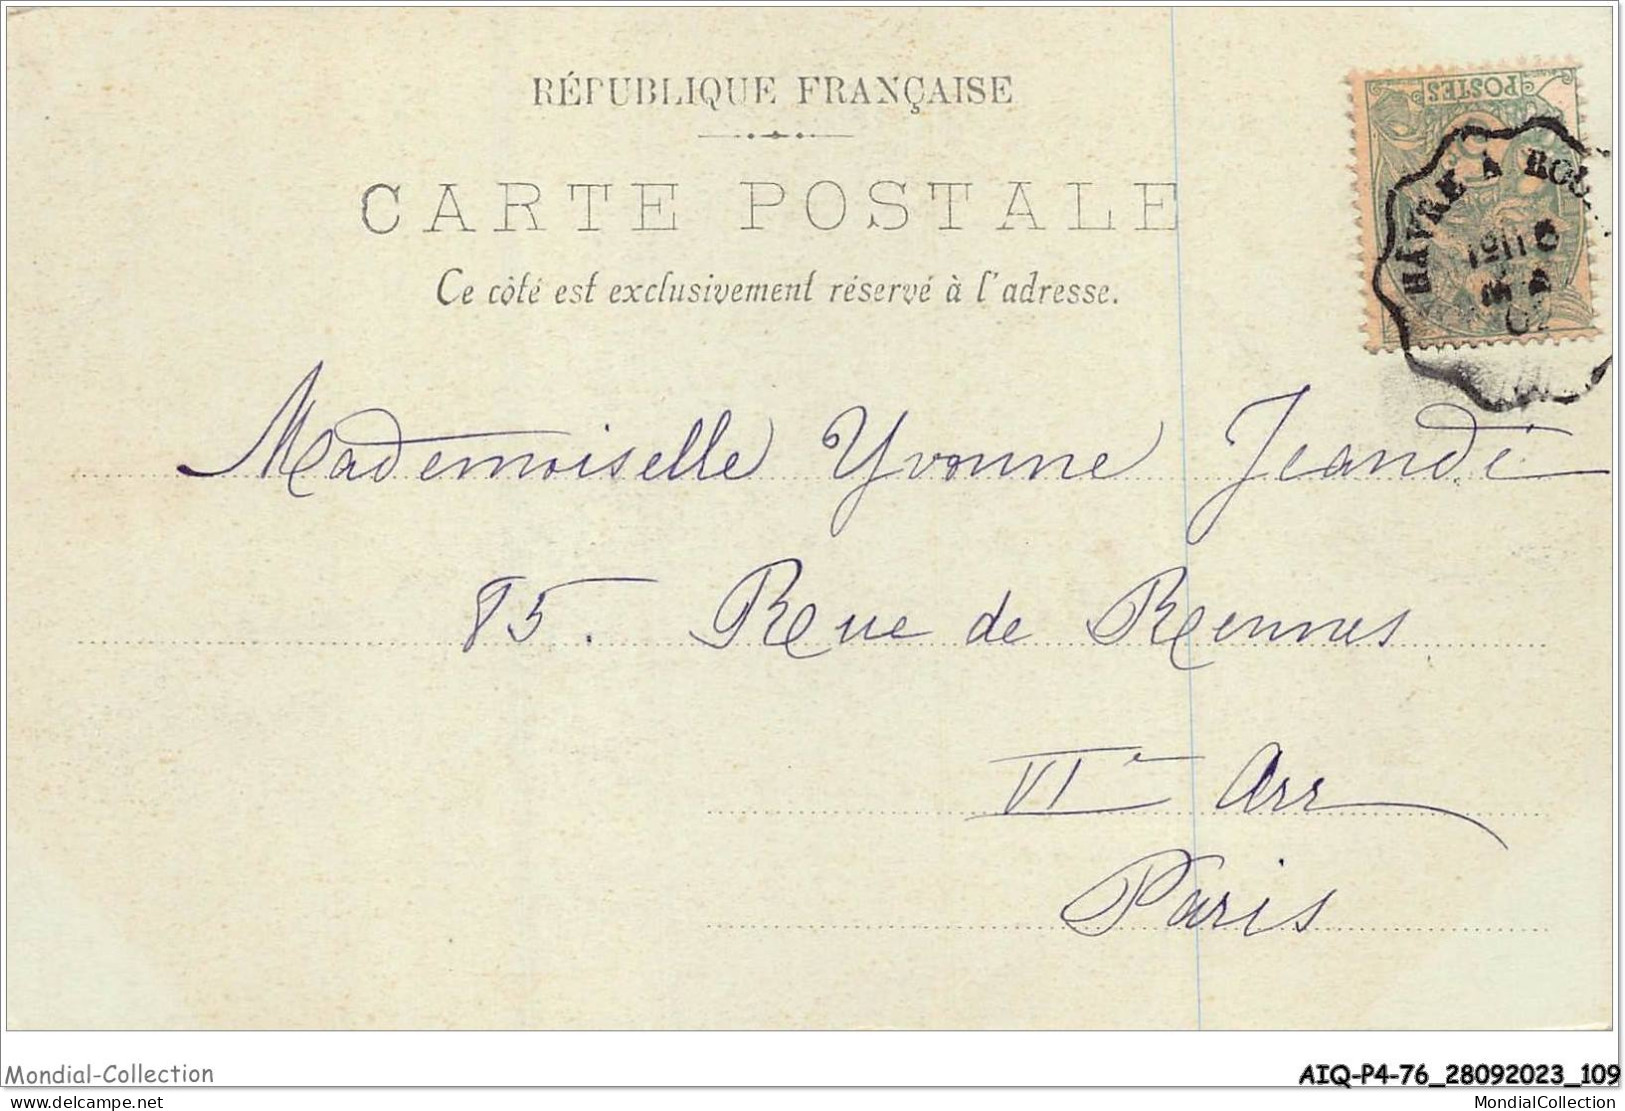 RÉPUBLIQUE FRANÇAISE
CARTE POSTALE
Ce côté est exclusivement réservé à l'adresse.
POSTES
HAVRE À
Mademoiselle Yvonne Jeandé
85. Rue de Rennes
VIe Arr
Paris
Mondial-Collection
AIQ-P4-76_28092023_109
delcampe.net
MondialCollection